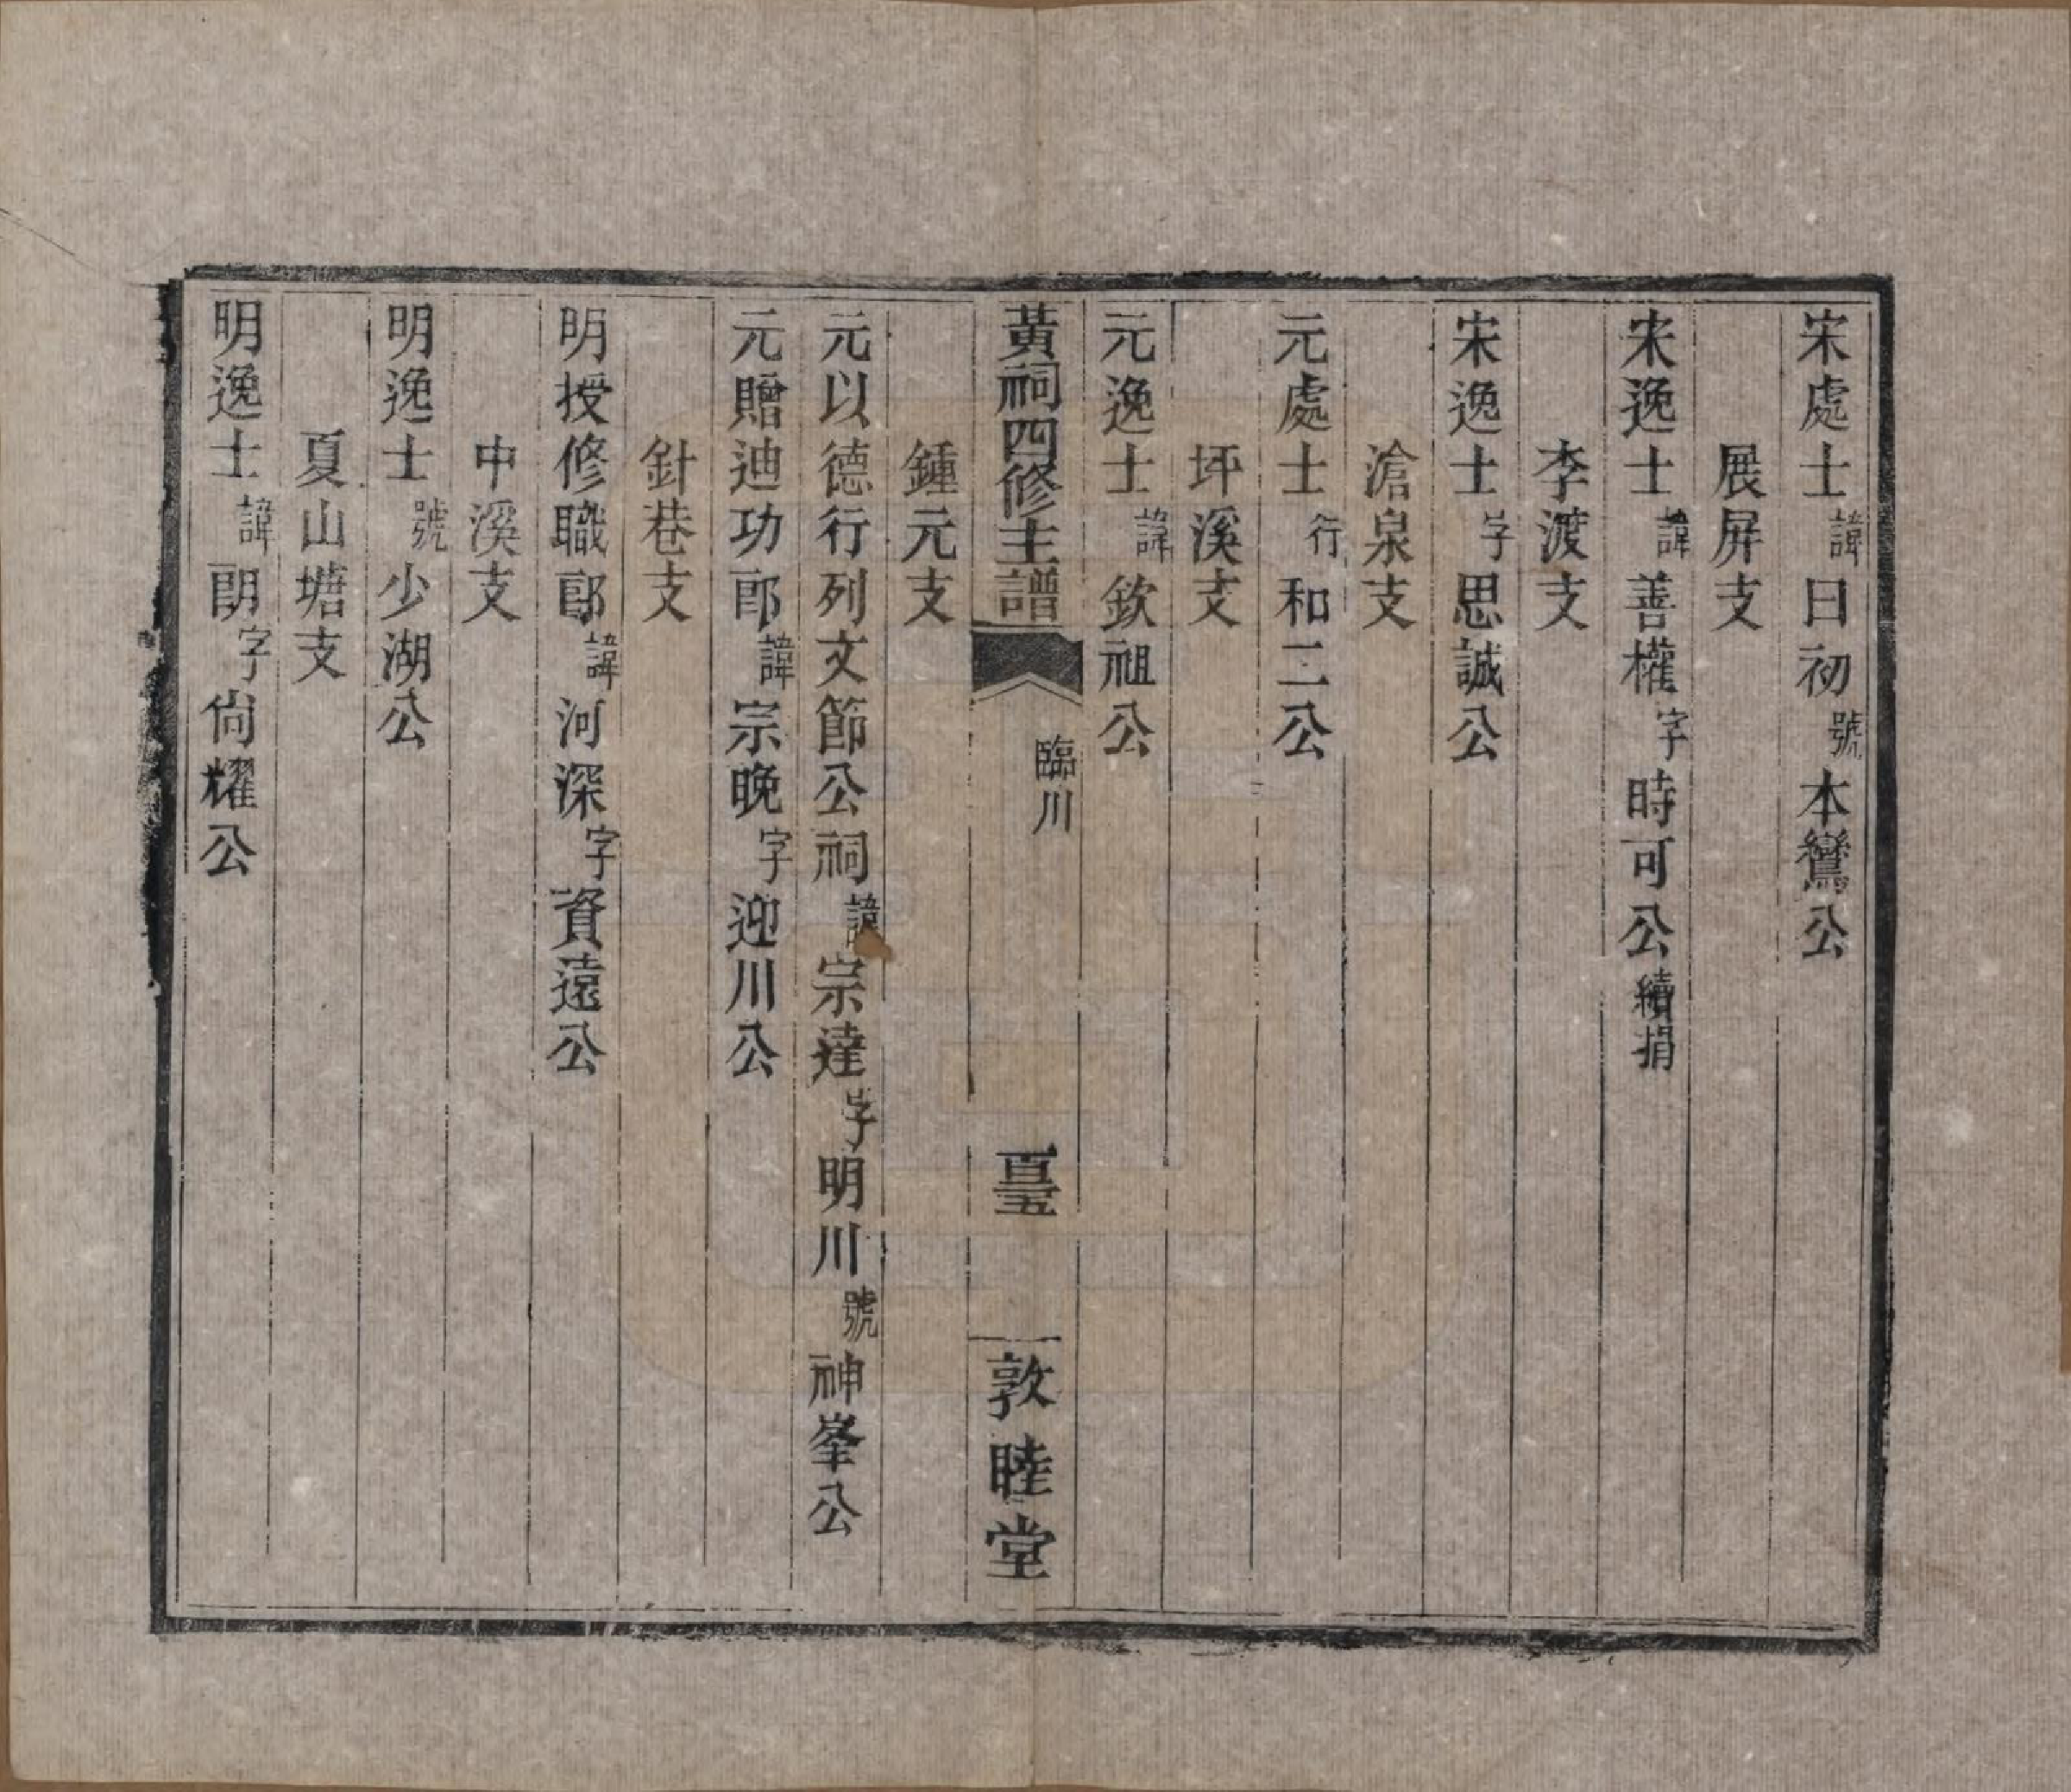 宋處士諱日初號本鸞公
展屏支
宋逸士諱善權字時可公續捐
李渡支
宋逸士字思誠公
滄泉支
元處士行和二公
坪溪支
元逸士諱欽祖公
黃祠四修主譜
臨川
敦睦堂
鍾元支
元以德行列文節公祠諱宗達字明川號神峯公
元贈迪功郎諱宗晚字迎川公
針巷支
明授修職郎諱河深字資遠公
中溪支
明逸士號少湖公
夏山塘支
明逸士諱朗字尙耀公